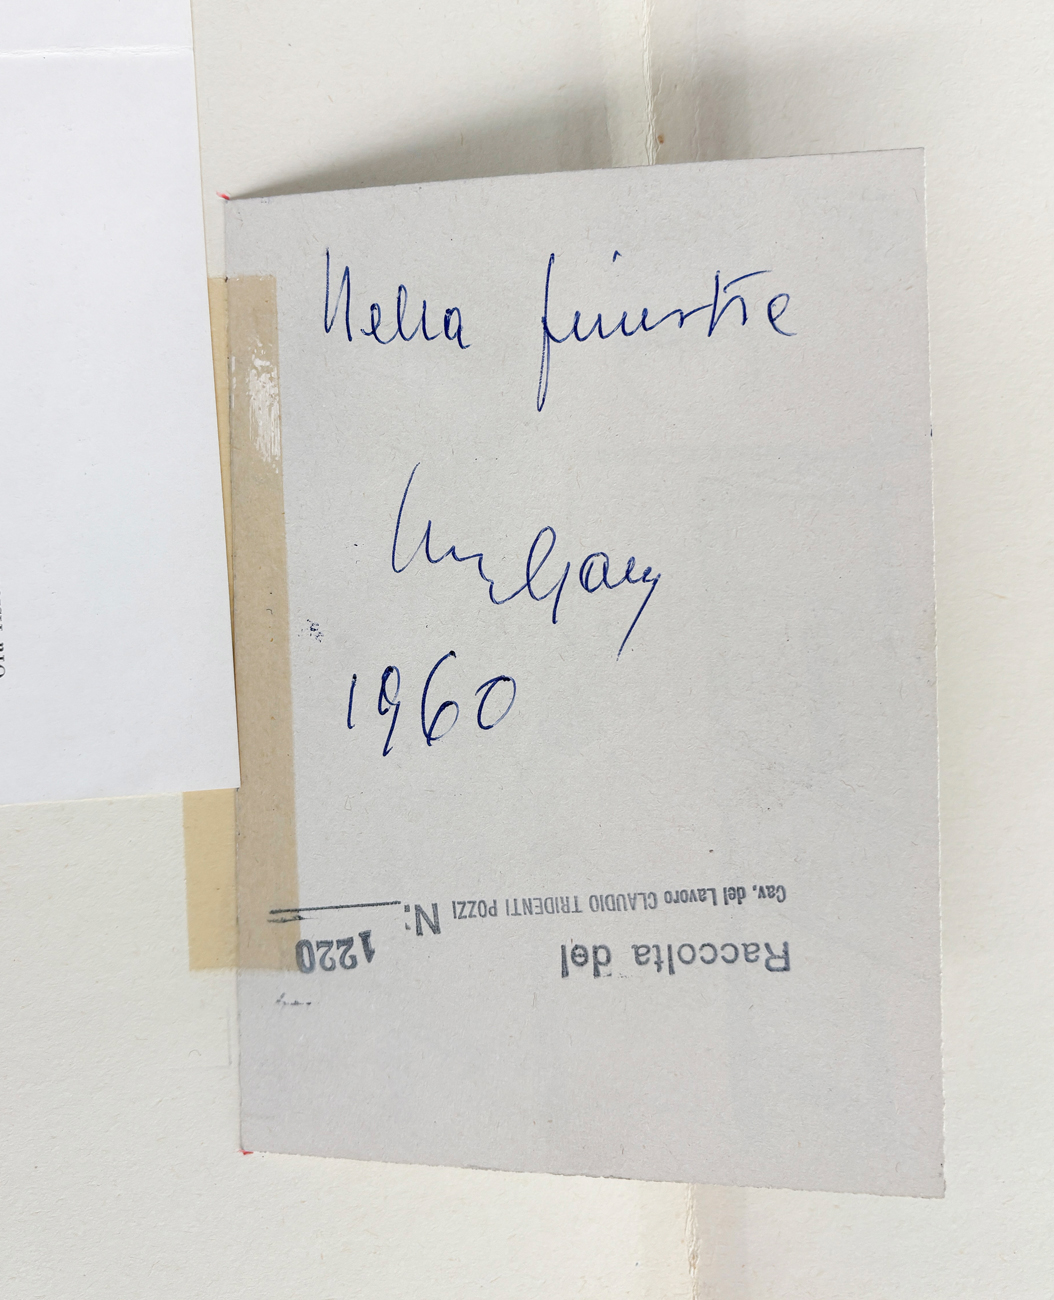 Nella finestra
1960
Raccolta del
Cav. del Lavoro CLAUDIO TRIDENTI POZZI N:
1220